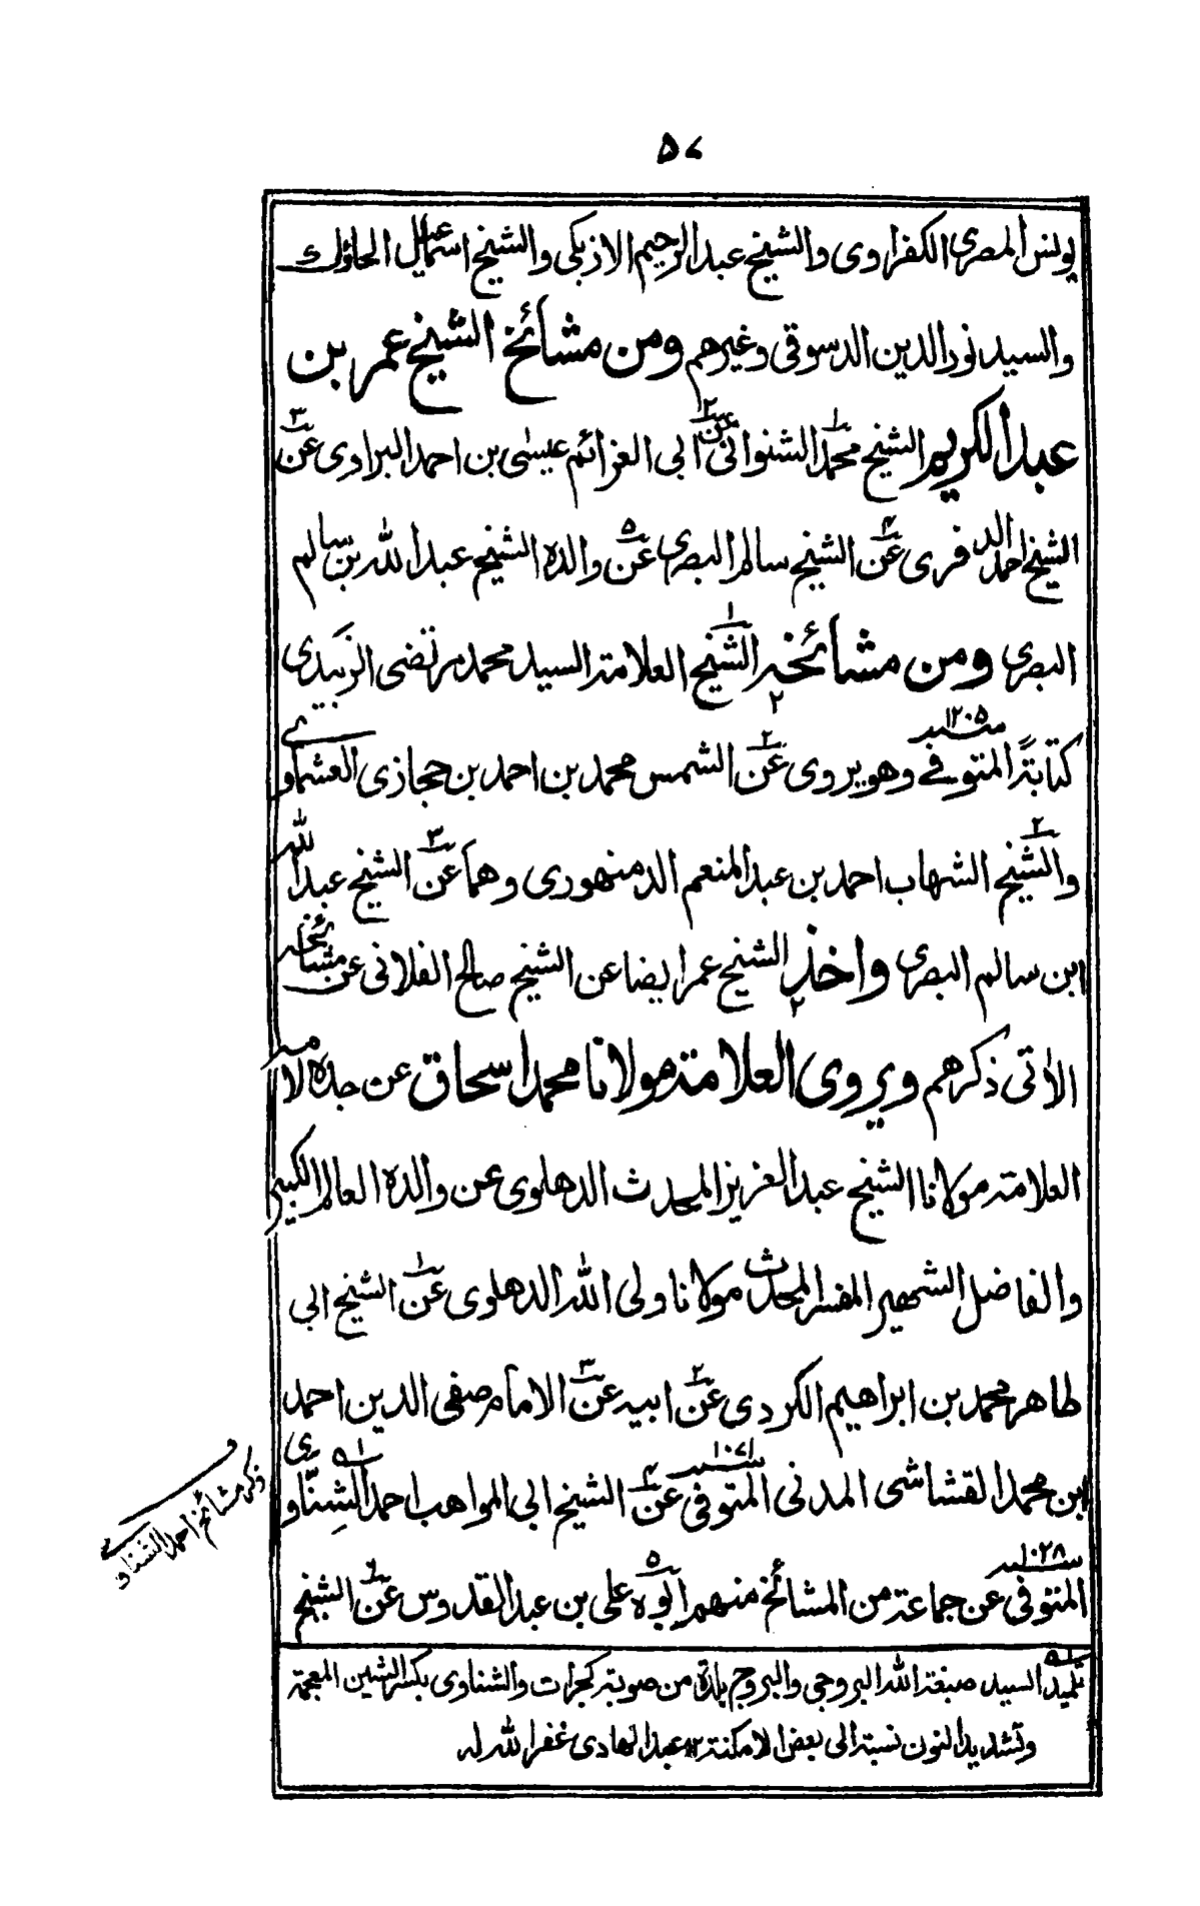 ٥٧
يونس المصري الكفراوى والشيخ عبد الرحيم الازبكى والشيخ اسماعيل
والسيد نور الدين الدسوقى وغيرهم ومن مشائخ الشيخ عمر بن
عبد الكريم الشيخ محمد الشنوانى عن ابى العزائم عيسى بن احمد البراوى عن
الشيخ احمد الدفرى عن الشيخ سالم البصرى عن والده الشيخ عبد الله بن سالم
البصرى ومن مشائخه الشيخ العلامة السيد محمد مرتضى الزبيدى
كتابةً المتوفے سنه ١٢٠٥ وهو يروى عن الشمس محمد بن احمد بن حجازى العشماوے
والشيخ الشهاب احمد بن عبد المنعم الدمنهورى وهما عن الشيخ عبد الله
ابن سالم البصرى واخذ الشيخ عمر ايضا عن الشيخ صالح الفلانى عن مشائخه
الأتى ذكرهم ويروى العلامة مولانا محمد اسحاق عن جده لامه
العلامة مولانا الشيخ عبد العزيز المحدث الدهلوى عن والده العالم الكبير
والفاضل الشهير المفسر المحدث مولانا ولى الله الدهلوى عن الشيخ ابى
طاهر محمد بن ابراهيم الكردى عن ابيه عن الامام صفى الدين احمد
ابن محمد القشاشى المدنى المتوفى سنه ١٠٧١ عن الشيخ ابى المواهب احمد الشِنّاوى
المتوفى سنه ١٠٢٨ عن جماعة من المشائخ منهم ابوه على بن عبد القدوس عن الشيخ
ذكر مشائخ احمد الشناوے
تلميذ السيد صبغة الله البروجى والبروج بلدة من صوبة كجرات والشناوى بكسر الشين المعجمة
وتشديد النون نسبة الى بعض الامكنة ١٢ عبد الهادى غفر الله له